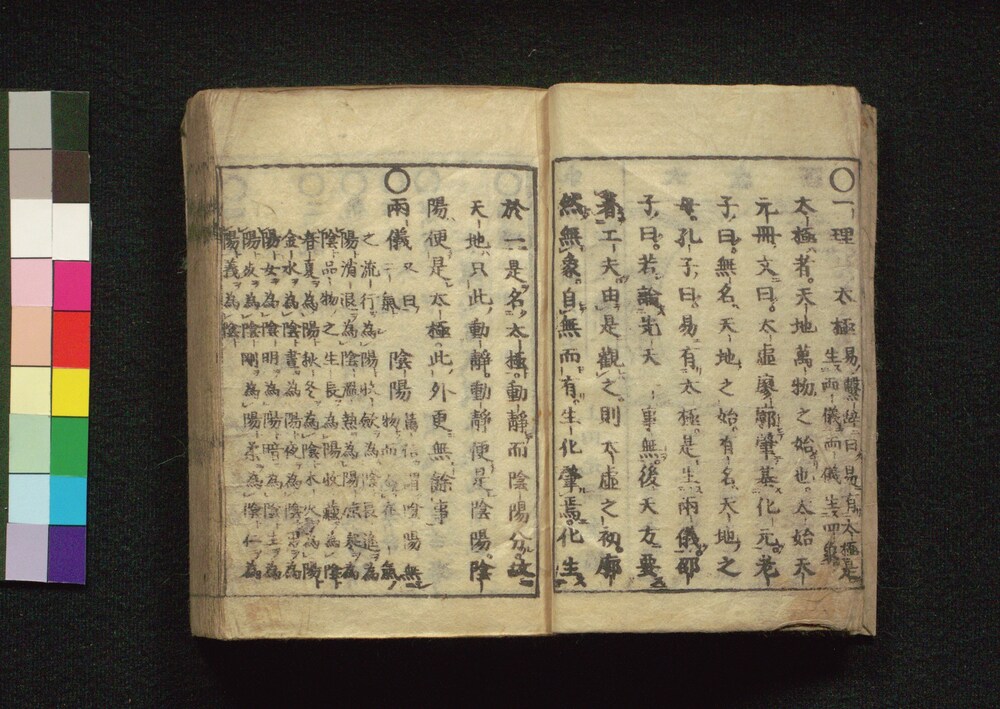 ○一理 太極 易繫辞曰易有太極是
生両儀両儀生四象
太極者天地萬物之始也太始天
元冊文曰太虚寥廓肇基化元老
子曰無名天地之始有名天地之
母孔子曰易有太極是生兩儀邵
子曰若論先天一事無後天方要
著工夫由是觀之則太虚之初廓
然無象自無而有生化肇焉化生
於一是名太極動静而陰陽分故
天地只此動静動静便是陰陽陰
陽便是太極此外更無餘事
○兩儀 又曰二氣 陰陽 陰陽無
物而在氣
之流行為陽收斂為陰長進為
陽消退為陰熱為陽凉為
陰品物之生長為陽收為陰
春夏為陽秋冬為陰木火為陽
金水為陰晝為陽夜為陰為
陽女為陰明為陽暗為陰為
陽故為陰剛為陽柔為陰仁為
陽義為陰